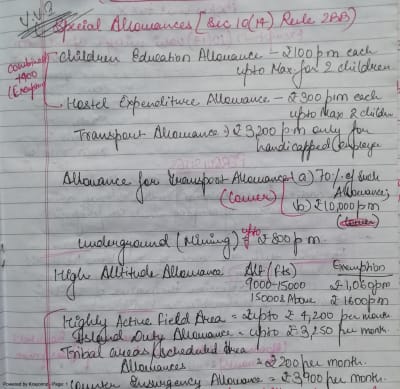 V.V.I
Special Allowances [Sec 10(14) Rule 2BB)
Children Education Allowance - ₹100 pm each
upto Max for 2 children
Combined
Hostel Expenditure Allowance - ₹300 pm each
upto Max 2 children
Transport Allowance → ₹3,200 pm only for
handicapped employee
Allowance for Transport Allowance (a) 70% of such
Allowance;
(lower)
(b) ₹10,000 pm
(lower)
Underground (Mining) upto ₹800 pm.
High Altitude Allowance Alt (fts) Exemption
9000-15000 ₹1,060pm
15000 & Above ₹1600pm
Highly Active Field Area = upto ₹4,200 per month
Island Duty Allowance = upto ₹3,250 per month.
Tribal areas/Scheduled Area
Allowances = ₹200 per month.
Counter Insurgency Allowance = ₹3,900 per month.